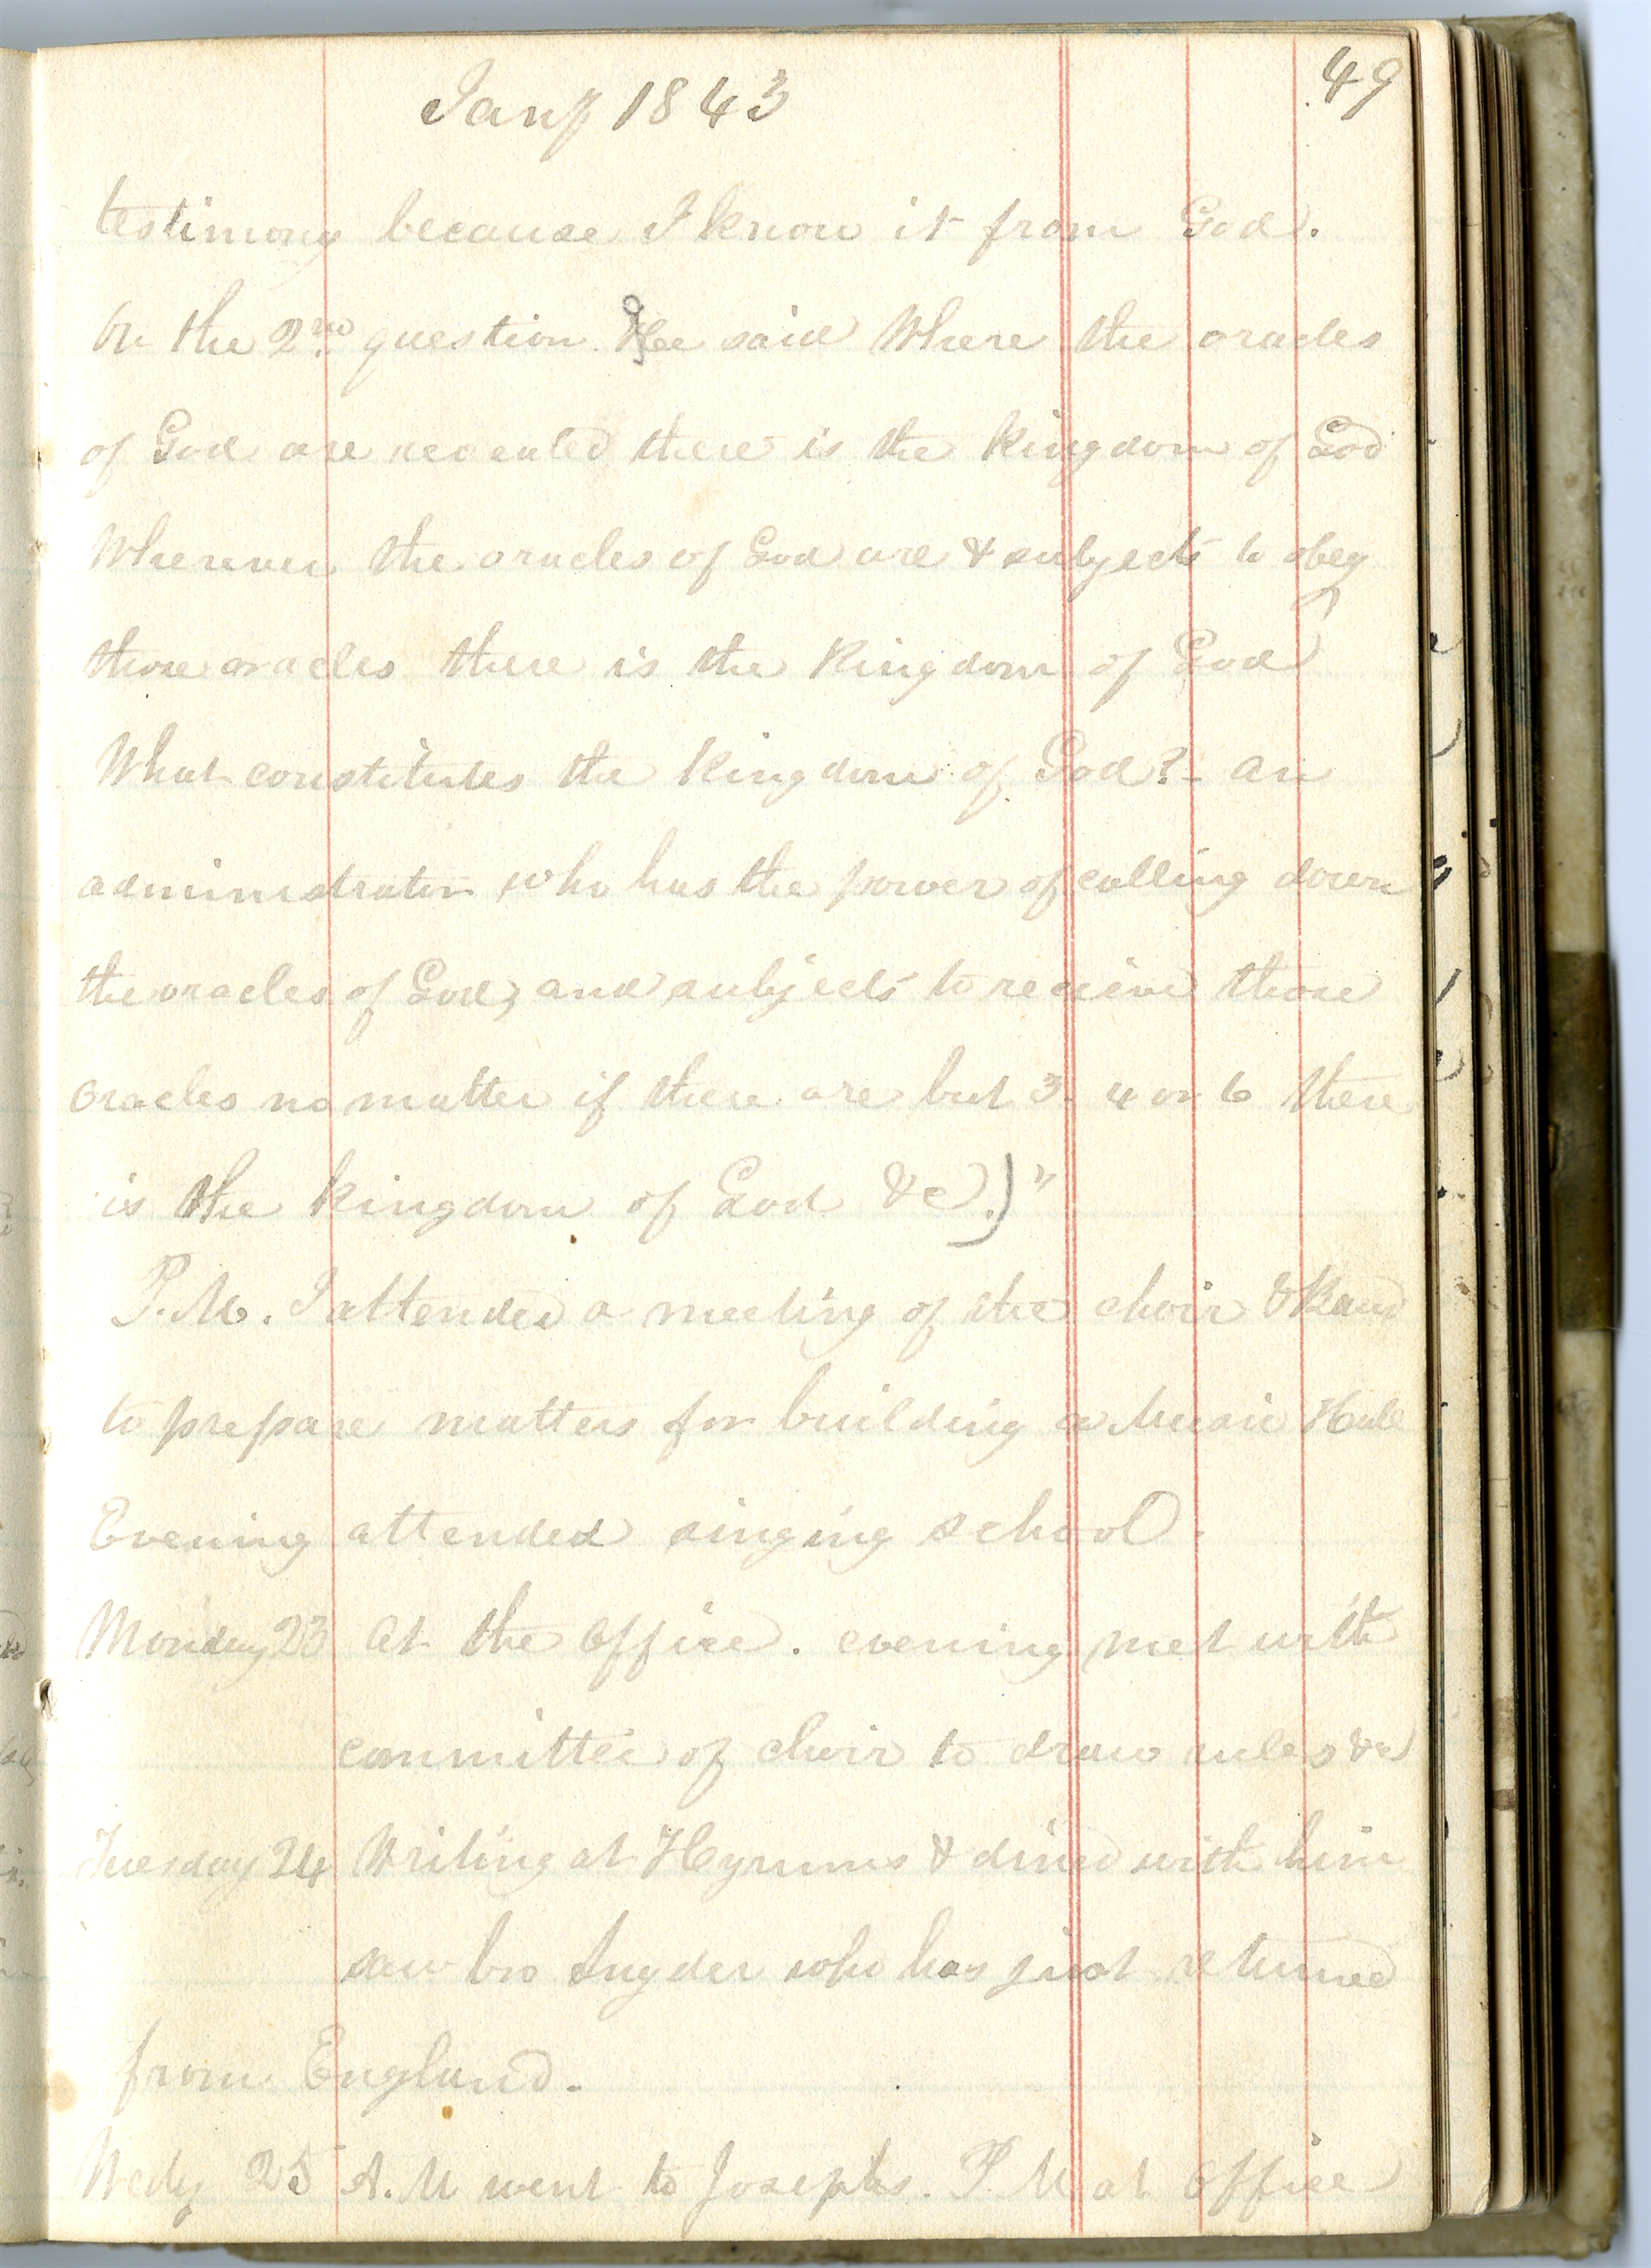 Jany 1843
49
testimony because I know it from God.
On the 2nd question He said Where the oracles
of God are revealed there is the kingdom of God
Wherever the oracles of God are & subjects to obey
those oracles there is the Kingdom of God
What constitutes the Kingdom of God? - an
administrator who has the power of calling down
the oracles of God, and subjects to receive those
oracles no matter if there are but 3. 4 or 6 there
is the kingdom of God &c.)"
P.M. I attended a meeting of the choir & Band
to prepare matters for building a Music Hall
Evening attended singing school.
Monday 23 At the office. evening met with
committee of choir to draw rules &c
Tuesday 24 Writing at Hyrums & dined with him
saw bro Snyder who has just returned
from England.
Wedy 25 A.M went to Josephs. P.M at office